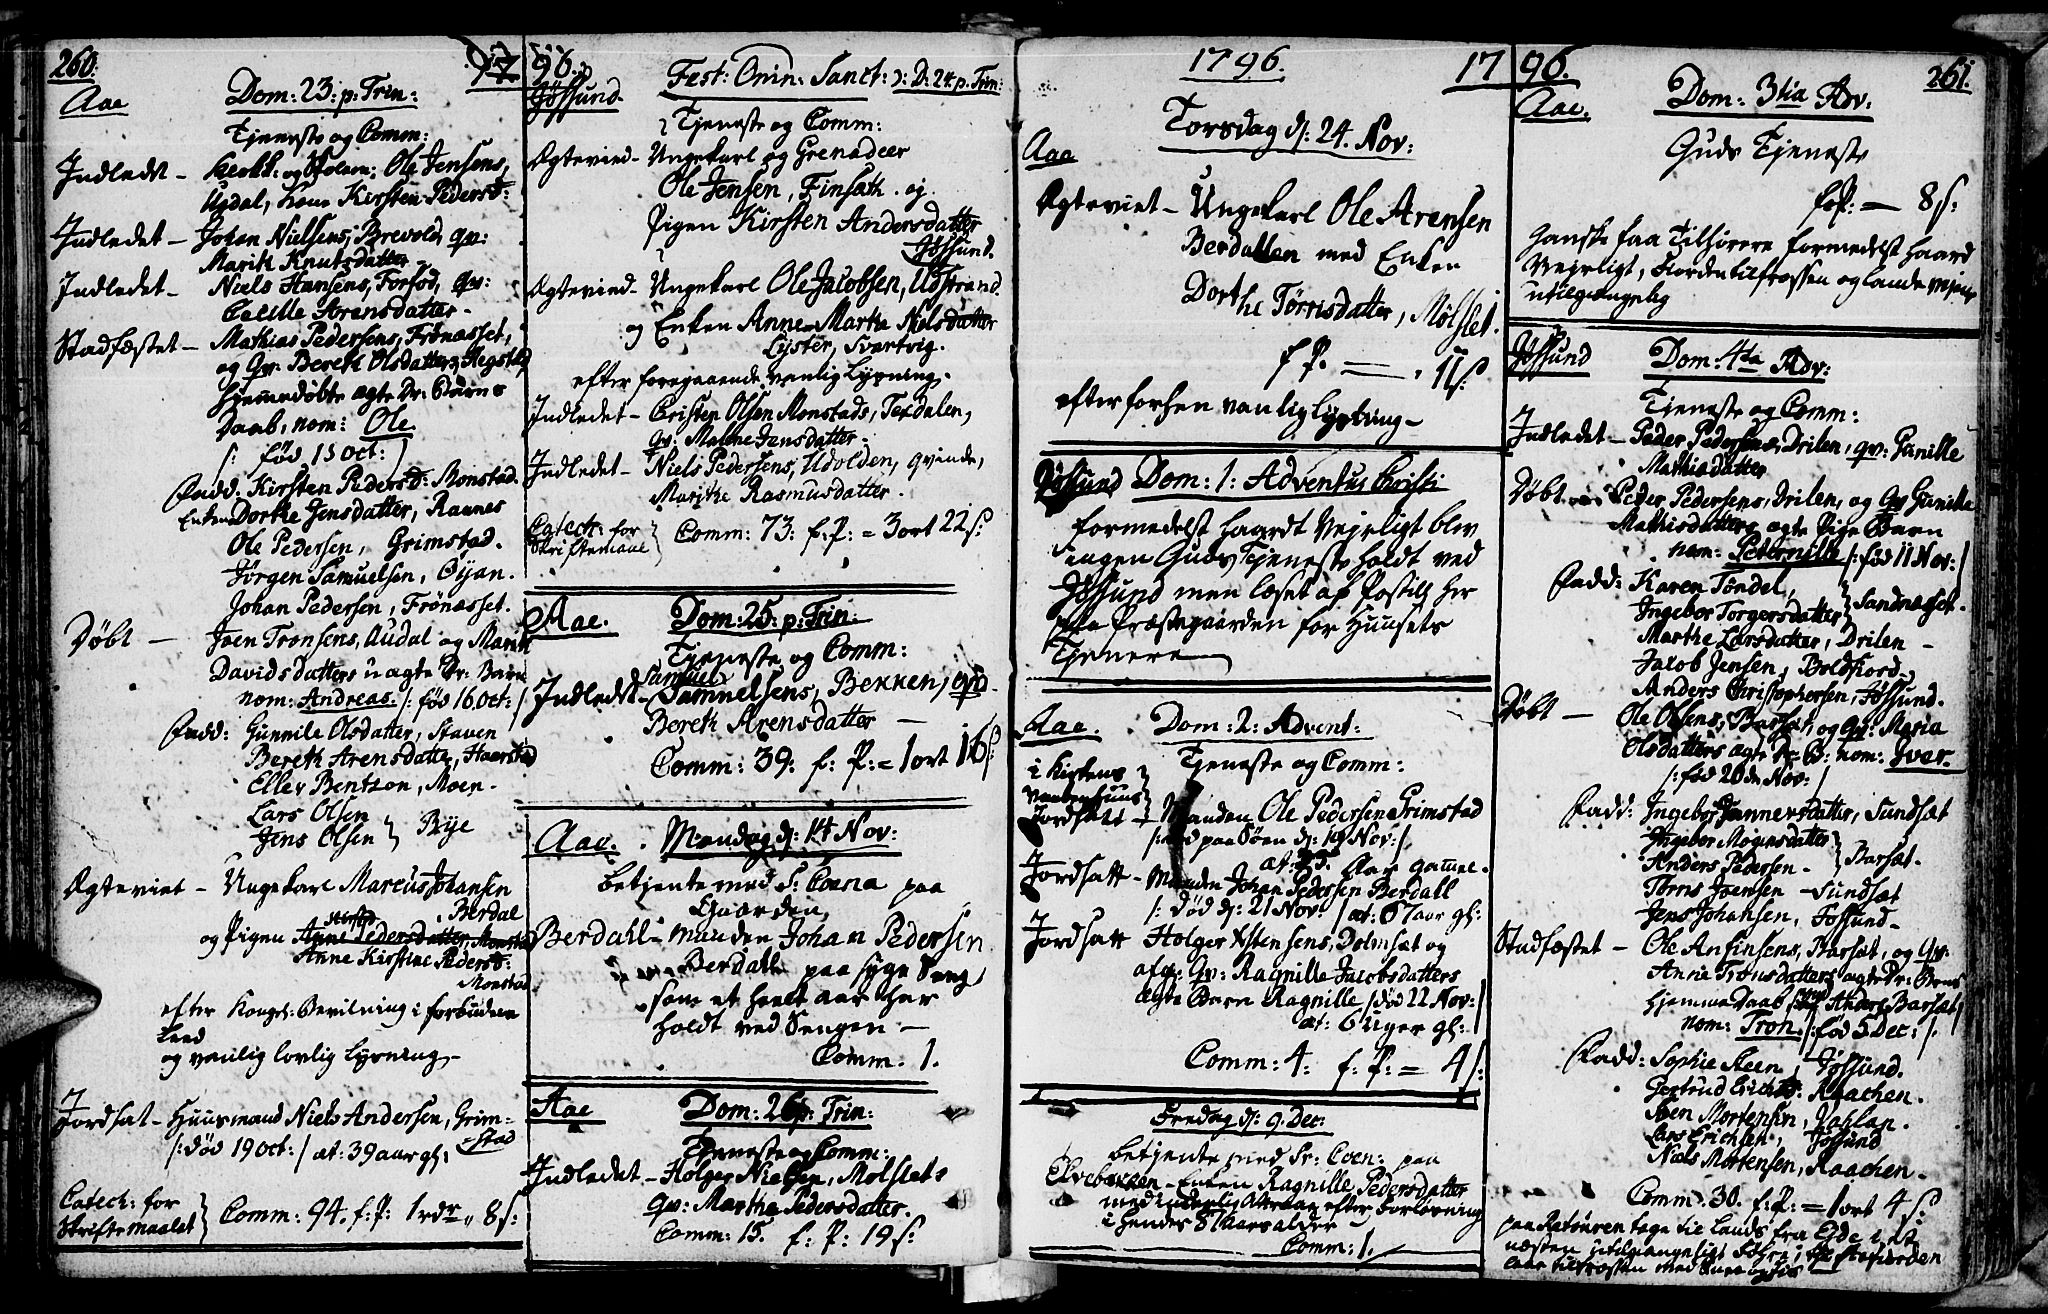 260.
1796.
Aae
Dom: 23: p: Trin:
Tjeneste og Comm:
Indledt - Kirke: og Skolem: Ole Jensens,
Opdal, Kone Kirsten Pedersd:
Indledet - Johan Nielsens, Brevold, qv:
Marith Knutsdatter
Indledet - Niels Hansens, Forsød, qv:
Cecille Arensdatter -
Stadfæstet - Mathias Pedersens, Frønæsset,
og Qv: Bereth Olsdatters, Hegstad
hjemmedøbte ægte Dr: Barns
Daab, nom: Ole
/: fød 15 Oct: /
Fadd: Kirsten Pedersd: Monstad.
Enken Dorthe Jensdatter, Raanes
Ole Pedersen, Grimstad.
Jørgen Samuelsen, Öyan.
Johan Pedersen, Frönæsset.
Döbt - Joen Tronsens, Audal og Marith
Davids Datters uægte Dr: Barn
nom: Andreas. /: fød 16 Oct: /
Fadd: Gunnile Olsdatter, Staven
Bereth Arensdatter, Haarstad
Eller Bentzon, Moen.
Lars Olsen
Jens Olsen } Bÿe
Ægteviet - Ungekarl Marcus Johansen
Berdal
og Pigen Anne Pedersdatter, Monstad
Anne Kirstine Pedersd:
Monstad
efter Kongel: Bevilning i forbuden
Leed
og vanlig lovlig Lysning -
Jordsat - Huusmand Niels Andersen, Grim-
stad
/: død 19 Oct: / æt: 39 aar gl:
Catech: for
Skriftemaalet } Comm: 94. f: P: 1 rdr „ 8 s:
Jøssund.
Fest: Omn: Sanct: ɔ: D: 24 p: Trin:
Tjeneste og Comm:
Ægtevied - Ungekarl og Grenadeer
Ole Jensen, Finsæth. og
Pigen Kirsten Andersdatter
Jøssund.
Ægtevied - Ungekarl Ole Jacobsen, Udstrand.
og Enken Anne Marthe Nielsdatter
Lyster, Svartvig.
efter foregaaende vanlig Lysning.
Indledet - Cristen Olsen Monstads, Texdalen,
qv: Malene Jensdatter.
Indledet - Niels Pedersens, Udolden, qvinde,
Marithe Rasmusdatter.
Catech: for
Skriftemaal } Comm: 73: f: P: = 3 ort 22 s:
Aae.
Dom: 25: p: Trin:
Tjeneste og Comm:
Samuel
Indledt - Samuelsens, Bekken, qv:
Bereth Arensdatter -
Comm: 39: f: P: = 1 ort 16 s:
Aae. Mandag d: 14 Nov:
betjente med S: Coena paa
Gaarden
Berdahl - manden Johan Pedersen
Berdall paa syge Seng
som et heelt aar har
holdt ved Sengen -
Comm. 1.
Aae
Dom: 26 p: Trin:
Tjeneste og Comm:
Indledet - Holger Nielsen, Molslets
qv: Marthe Pedersdatter.
Comm: 15. f: P: 19 s:
1796.
Torsdag d: 24. Nov:
Aae
Ægteviet - Ungekarl Ole Arensen
Berdallen med Enken
Dorthe Tørrisdatter, Mølslet.
f P. = „ 11 s:
efter forhen vanlig Lysning -
Jøssund Dom: 1: Adventus Christi
formedelst haardt Vejerligt blev
ingen Guds Tjeneste holdt ved
Jøssund men læset af Postill her
paa Præstegaarden for Huusets
Tjenere
Aae.
Dom: 2: Advent:
Tjeneste og Comm:
i Kirkens
Vaabenhuus
Jordsatt - Manden Ole Pedersen Grimstad
/: død paa Søen d: 19 Nov: /
æt: 35. Aar gamel.
Jordsatt - Manden Johan Pedersen Berdall
/: død d: 21 Nov: / æt: 67 aar gl:
Jordsatt Holger Estensens, Dolmsæt og
afg: Qv: Ragnille Jacobsdatters
ægte Barn Ragnille /død 22 Nov:/
æt: 6 Uger gl:
Comm: 4. f: P: = 4 s:
Fredag d: 9. Dec:
betjente med Sr: Coen: paa
Elvebakken - Enken Ragnille Pedersdatter
med inderlig Attraae efter Forløsning
i hendes 81 Aars alder
Comm: 1.
1796.
261.
Aae.
Dom: 3tia Adv:
Guds Tjeneste
f: P: — 8 s:
Ganske faa Tilhørere formedelst haard
Vejerligt, Fiorden tilfrossen og lande vejene
utilgiængelig
Jøssund
Dom: 4ta Adv:
Tjeneste og Comm:
Indledet - Peder Pedersens, Drilen, qv: Gunille
Mathisdatter
Döbt - Peder Pedersens, Drilen, og Qv Gunille
Mathisdatters ægte Pige Barn
nom: Peternille /: fød 11 Nov: /
Fadd: Karen Tøndel,
Ingebor Torgersdatter } Sandnæsset.
Marthe Larsdatter, Drilen -
Jacob Jensen, Boldfiord -
Anders Christophersen, Jøssund.
Döbt - Ole Olsens, Barsæt, og qv: Maria
Olsdatters ægte Dr: B: nom: Iver.
/: fød 20de Nov: /
Fadd: Ingebor Jannersdatter, Sundsæt
Ingebor Mogensdatter
Anders Pedersen - } Barsæt.
Tørris Joensen - Sundsæt
Jens Johansen, Jøssund -
Stadfæstet - Ole Anfinsens, Barsæt, og Qv:
Anne Tronsdatters ægte Dr: Barns
hjemme Daab Anders Barsæt
nom: Tron. /: fød 5 Dec: /.
Fadd: Sophie Steen, Jøssund.
Gertrud Erichsd: Raachen.
Sven Mortensen, Vahlan.
Lars Erichsen, Jøssund
Niels Mortensen, Raachen.
Comm: 30. f: P: = 1 ort 4 s:
paa Retouren tage til Lands fra Eide i et
næsten utilgiængeligt Føhre, Stofiorden
være tilfrossen med